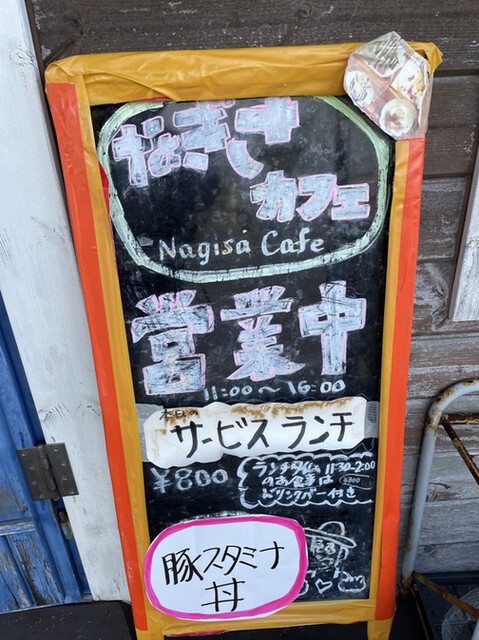 なぎさ
カフェ
Nagisa Cafe
営業中
11:00～16:00
本日の
サービスランチ
¥800
ランチタイム 11:30-2:00
のお食事は
ドリンクバー付き
豚スタミナ
丼